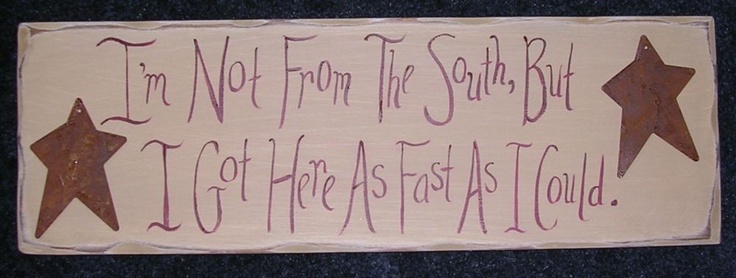 I'm Not From The South, But
I Got Here As Fast As I Could.